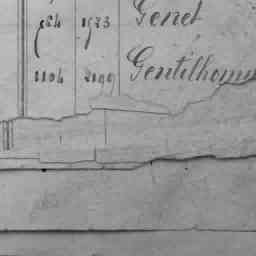 1923 Genet
1104 2199 Gentilhomme